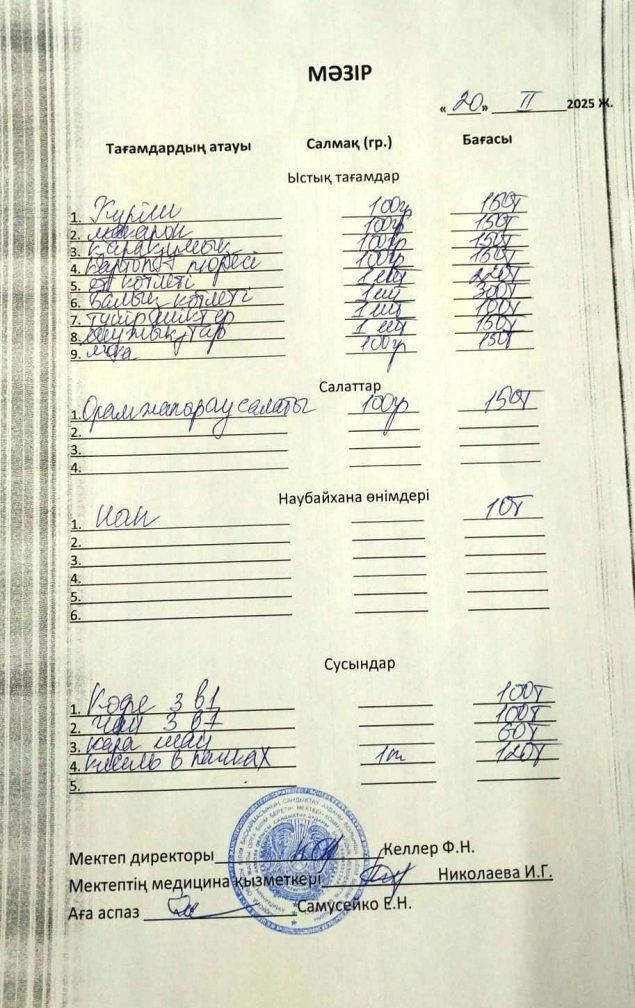 МӘЗІР
«20» II 2025 Ж.
Тағамдардың атауы Салмақ (гр.) Бағасы
Ыстық тағамдар
1. Күріш 100гр 150т
2. макарон 100гр 150т
3. қарақұмық 100гр 150т
4. картоп пюресі 100гр 150т
5. ет котлеті 1 шт 220т
6. балық котлеті 1 шт 300т
7. 1 шт 100т
8. 1 шт 150т
9. 100гр 130т
Салаттар
1. салаты 100гр 150т
2.
3.
4.
Наубайхана өнімдері
1. нан 10т
2.
3.
4.
5.
6.
Сусындар
1. Кофе 3 в1 100т
2. чай 3 в1 100т
3. қара шай 60т
4. кисель в пачках 1п 120т
5.
Мектеп директоры Келлер Ф.Н.
Мектептің медицина қызметкері Николаева И.Г.
Аға аспаз Самусейко Е.Н.